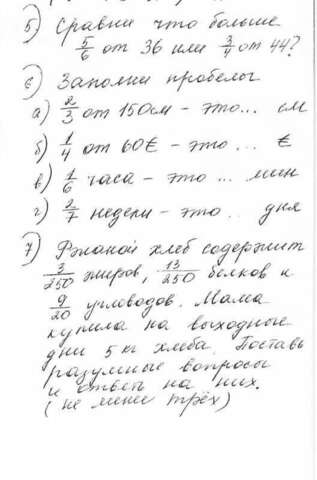 5) Сравни что больше
5/6 от 36 или 3/4 от 44?
6) Заполни пробелы
а) 2/3 от 150см - это... см
б) 1/4 от 60€ - это ... €
в) 1/6 часа - это ... мин
г) 2/7 недели - это .. дня
7) Ржаной хлеб содержит
3/250 жиров, 13/250 белков и
9/20 углеводов. Мама
купила на выходные
дни 5 кг хлеба. Поставь
разумные вопросы
и ответь на них.
(не менее трёх)